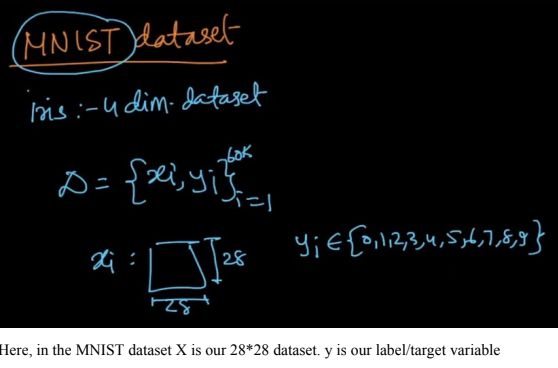 MNIST dataset
iris :- 4 dim. dataset
D = {xi, yi}60K i=1
xi : 28 28
yi ∈ {0,1,2,3,4,5,6,7,8,9}
Here, in the MNIST dataset X is our 28*28 dataset. y is our label/target variable